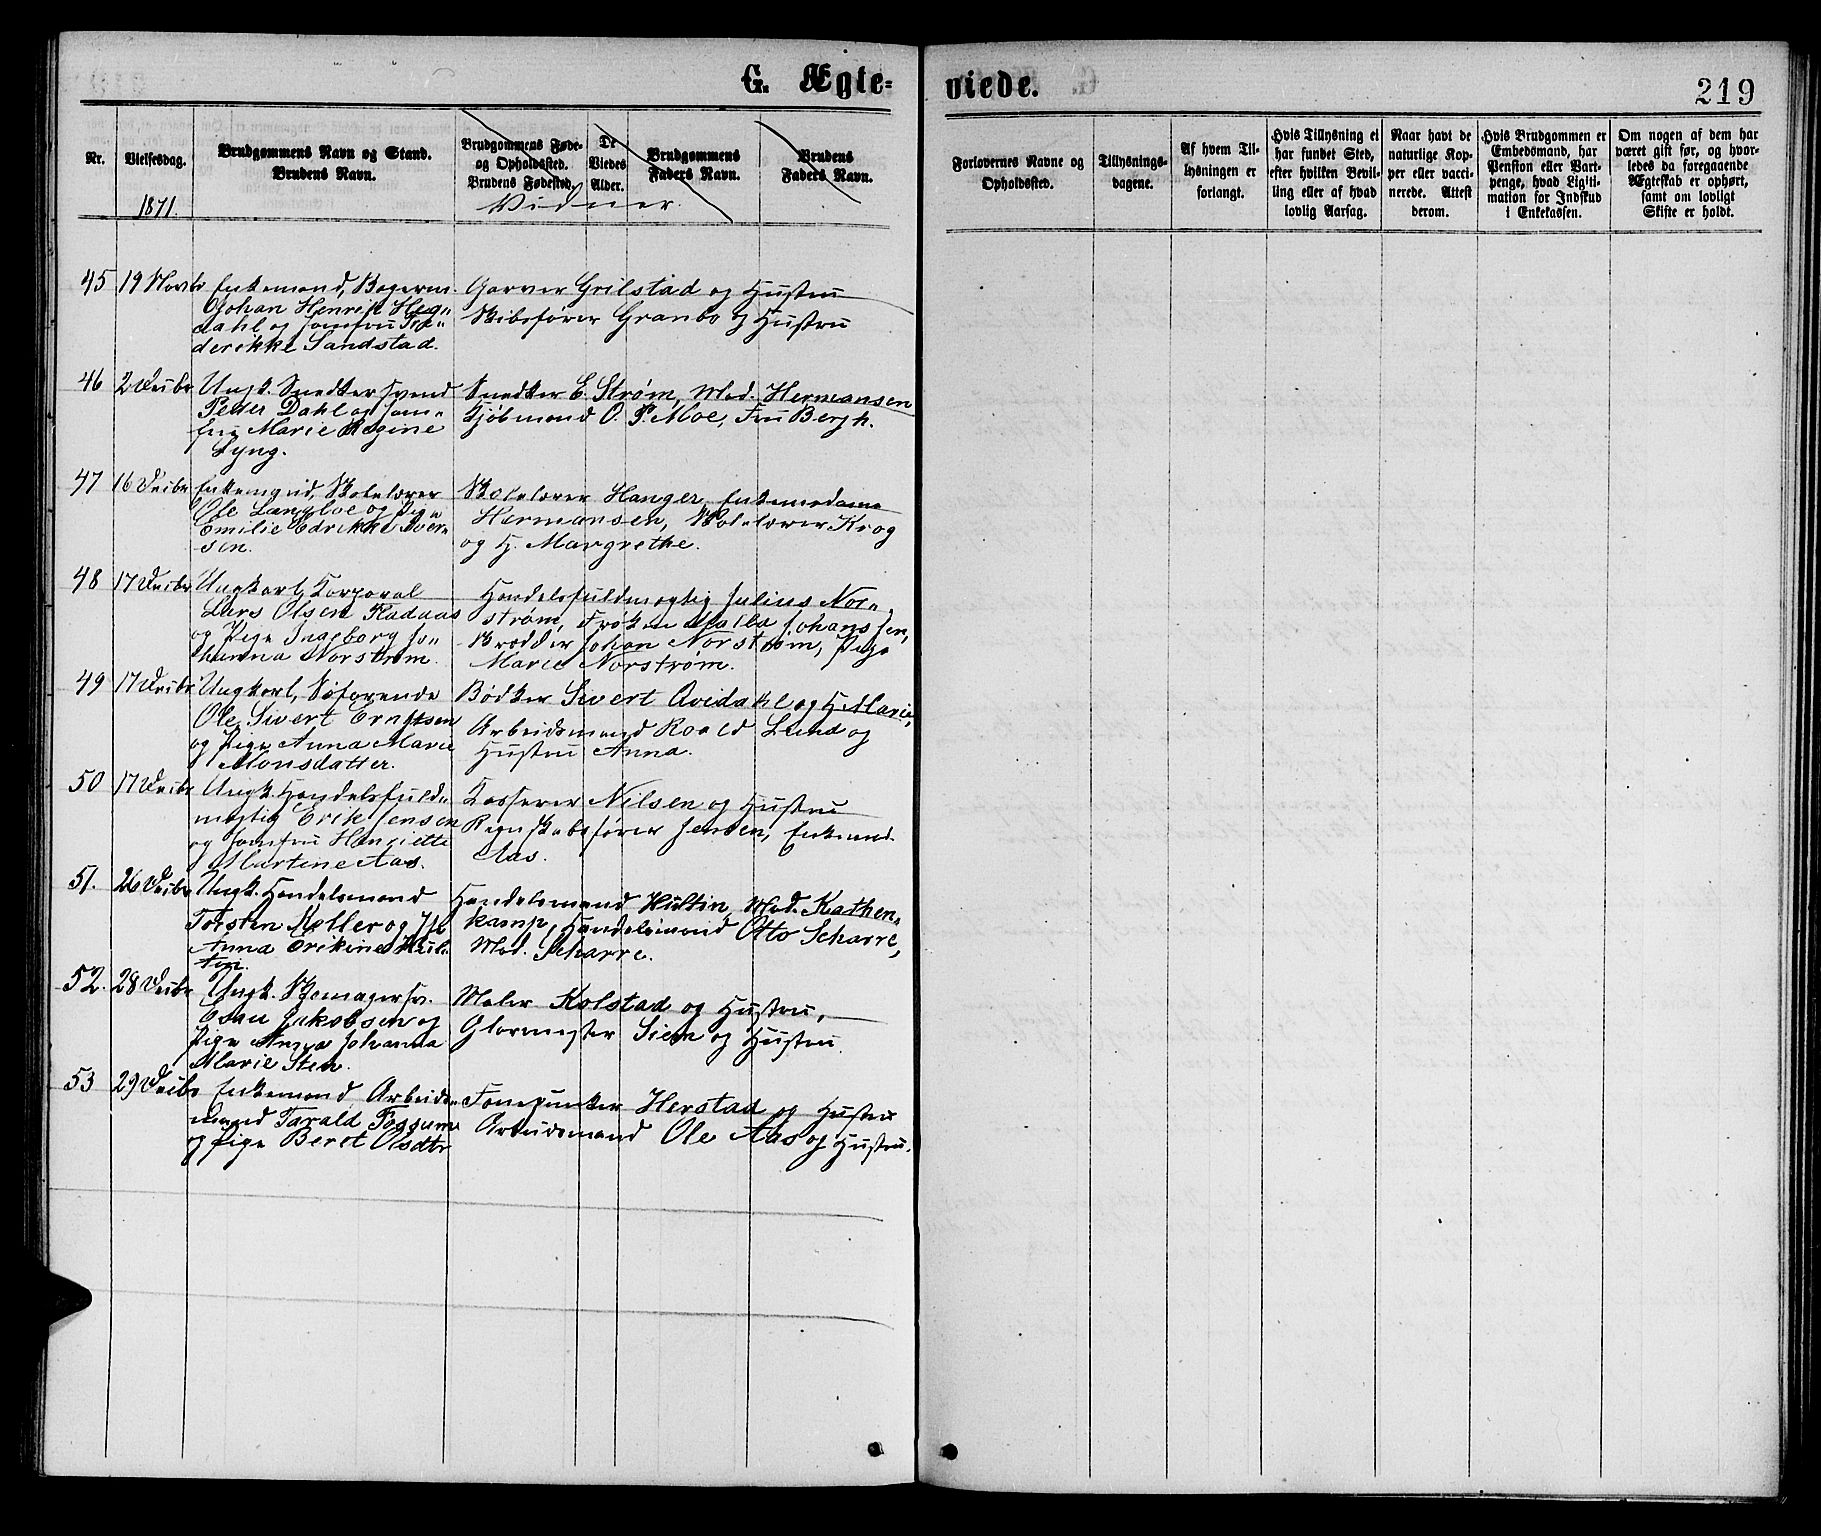 G. Ægte-
viede.
219
Nr.
Vielsesdag.
1871.
Brudgommens Navn og Stand.
Brudens Navn.
Brudgommens Føde-
og Opholdssted.
Brudens Fødested.
De
Viedes
Alder.
Brudgommens
Faders Navn.
Brudens
Faders Navn.
Vidner.
Forlovernes Navne og
Opholdssted.
Tillysnings-
dagene.
Af hvem Til-
lysningen er
forlangt.
Hvis Tillysning ei
har fundet Sted,
efter hvilken Bevil-
ling eller af hvad
lovlig Aarsag.
Naar havt de
naturlige Kop-
per eller vacci-
nerede. Attest
derom.
Hvis Brudgommen er
Embedsmand, har
Pension eller Vart-
penge, hvad Ligiti-
mation for Indskud
i Enkekassen.
Om nogen af dem har
været gift før, og hvor-
ledes da foregaaende
Ægteskab er ophørt,
samt om lovligt
Skifte er holdt.
45 19 Novbr Enkemand, Bagerm.
Johan Henrik Heg-
dahl og Jomfru Fre-
derikke Sandstad.
Garver Grilstad og Hustru
Skibsfører Granbo og Hustru
46 2 Decbr Ungk. Snedkersvend
Peder Dahl og Jom-
fru Marie Regine
Lyng.
Snedker E. Strøm, Mad. Hermansen
Kjøbmand O. P. Moe, Fru Bergh.
47 16 Decbr Enkemand, Skolelærer
Ole Langloe og Pige
Emilie Edrikke Iver-
sen.
Skolelærer Hanger, Enkemadame
Hermansen, Skolelærer Krog
og H. Margrethe.
48 17 Decbr Ungkarl, Korporal
Lars Olsen Fladaas
og Pige Ingeborg Jo-
hanna Norstrøm.
Handelsfuldmægtig Julius Nor-
strøm, Frøken Johanssen,
Skrædder Johan Norstrøm, Pige
Marie Norstrøm.
49 17 Decbr Ungkarl, Søfarende
Ole Sivert Ernstsen
og Pige Anna Marie
Monsdatter.
Bødker Sivert Qvidahl og H. Marie,
Arbeidsmand Roald Lund og
Hustru Anna.
50 17 Decbr Ungk. Handelsfuld-
mægtig Erik Jensen
og Jomfru Henriette
Martine Aas.
Kasserer Nilsen og Hustru
Regnskabsfører Jensen, Enkemd.
Aas.
51. 26 Decbr Ungk. Handelsmand
Torsten Møller og Jfr
Anna Erikine Hul-
tin.
Handelsmand Hultin, Mad. Kathen-
kamp, Handelsmand Otto Scharre,
Mad. Scharre.
52. 28 Decbr Ungk. Skomagersv.
Esau Jakobsen og
Pige Anna Johanna
Marie Sten.
Maler Kolstad og Hustru,
Glarmester Siem og Hustru.
53 29 Decbr Enkemand, Arbeids-
mand Tarald Fossum
og Pige Beret Olsdtr
Herstad og Hustru
Arbeidsmand Ole Aas og Hustru.